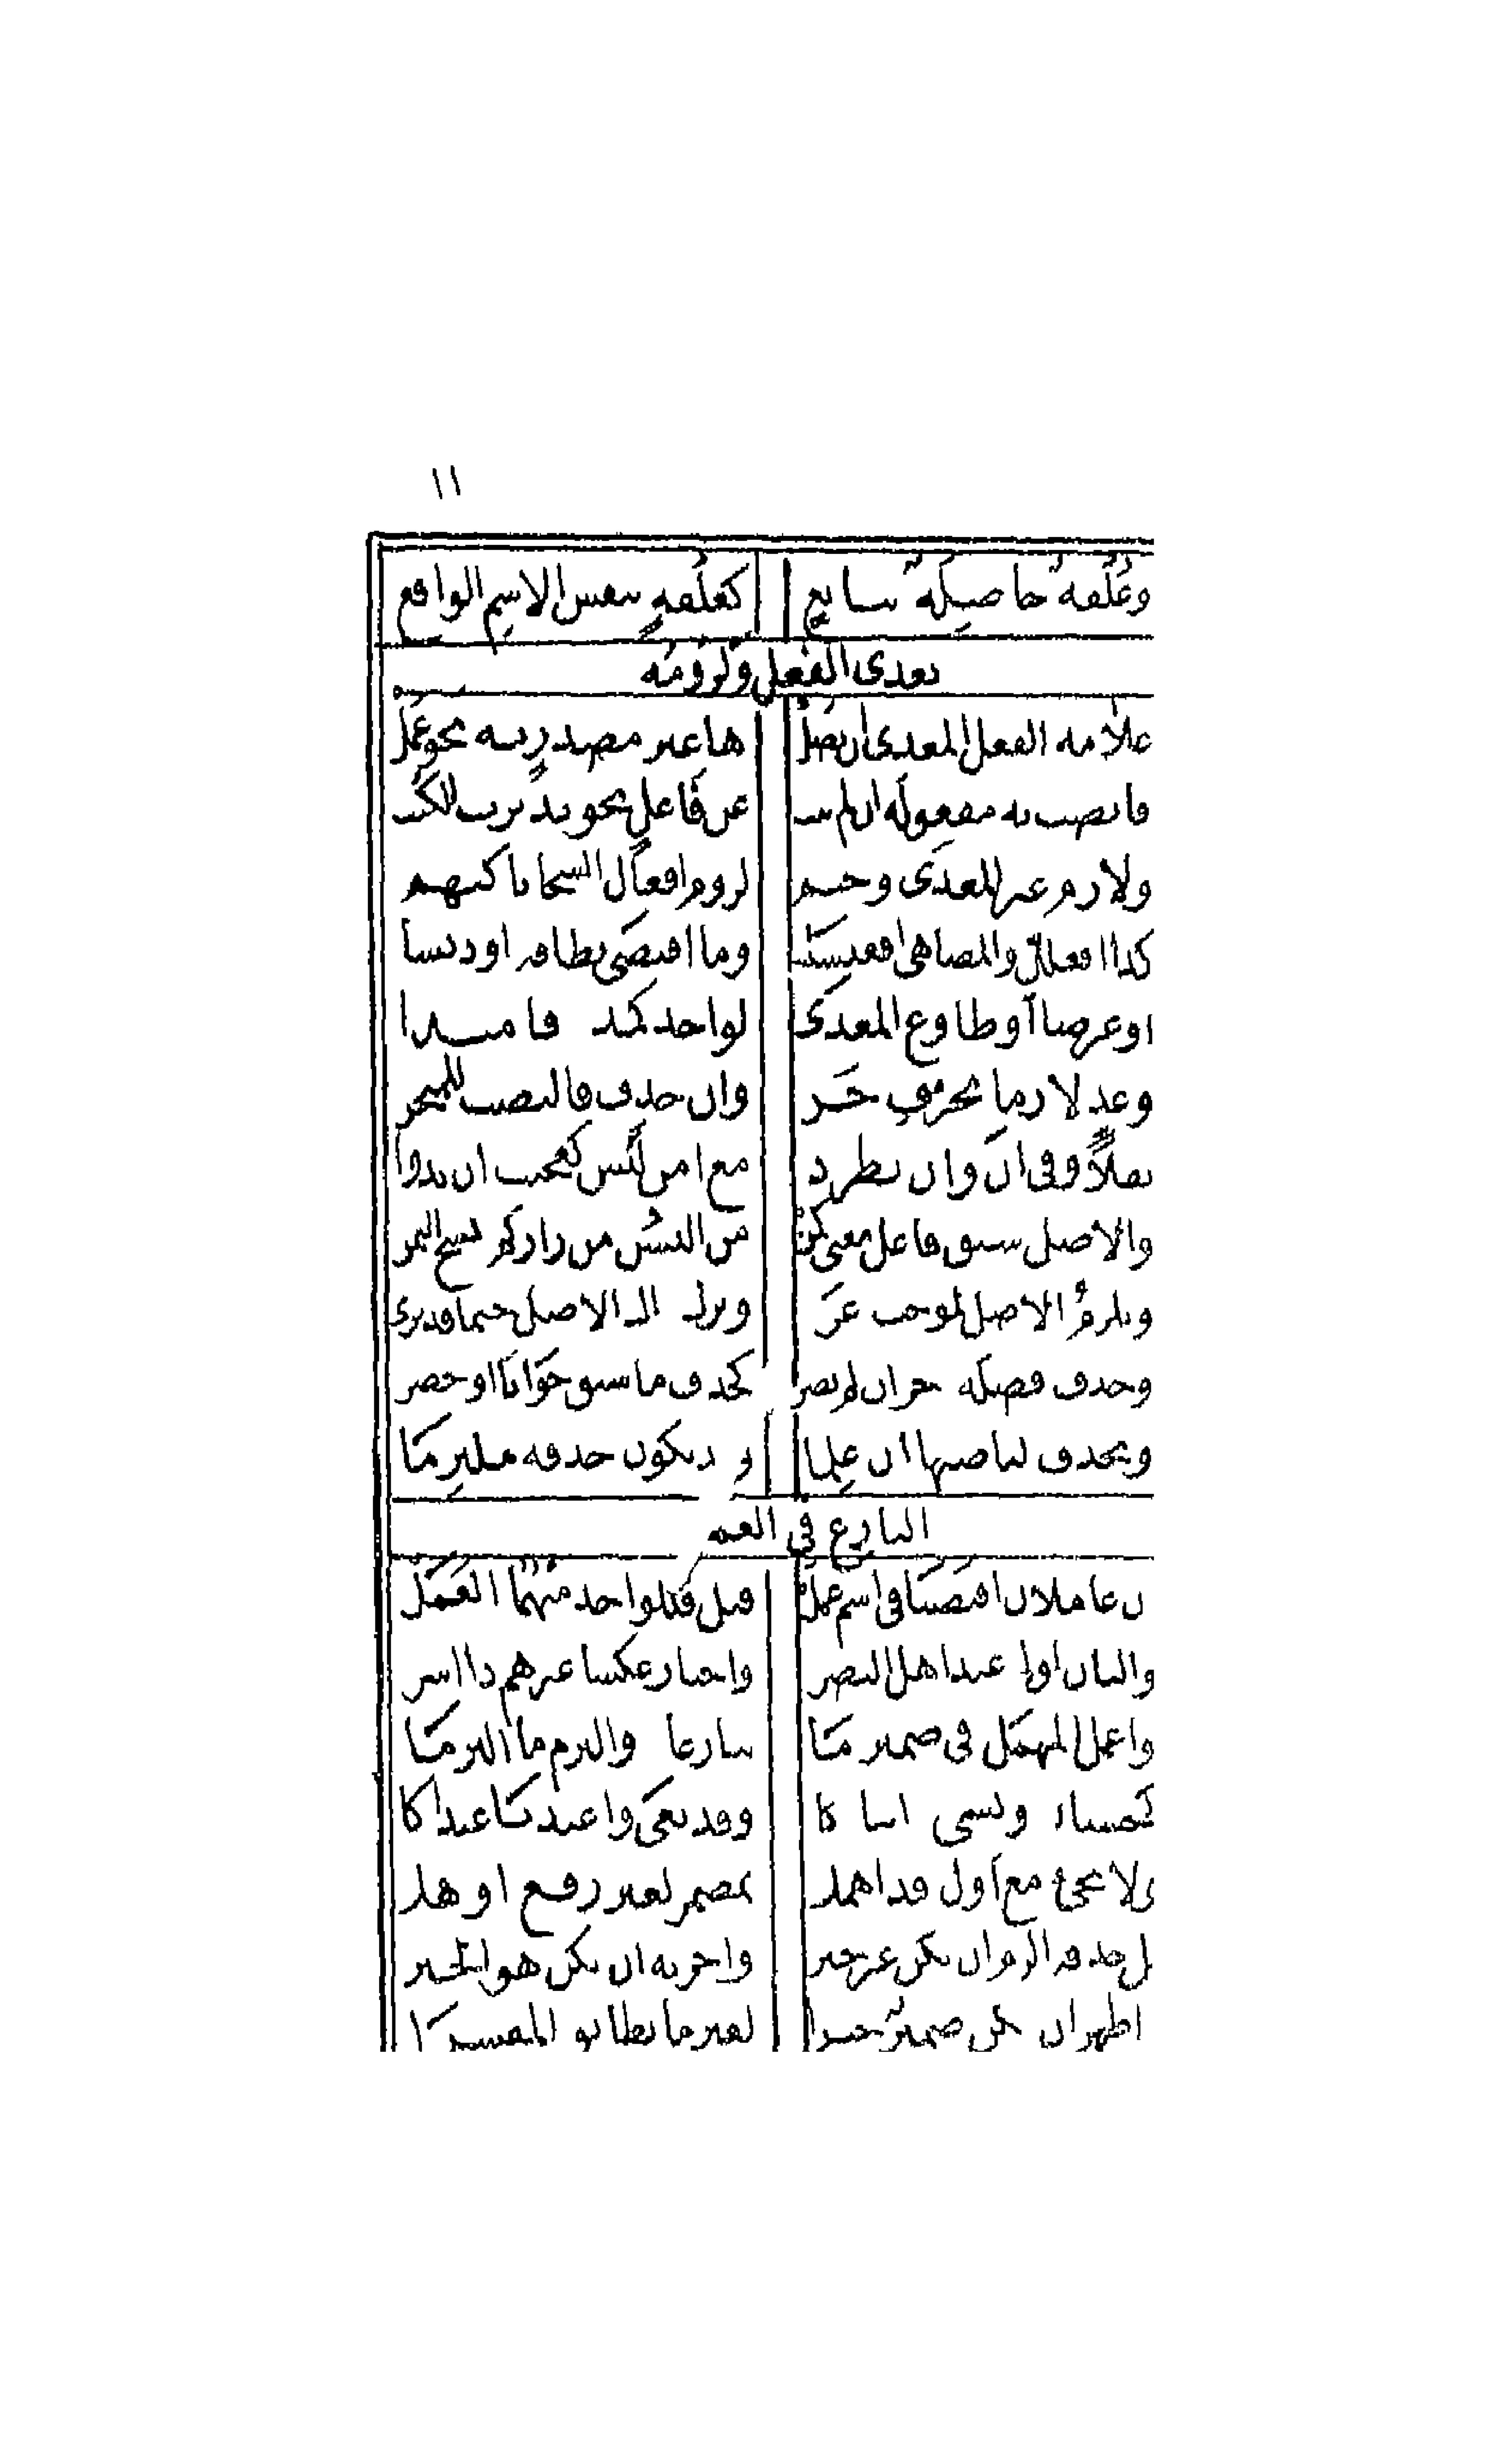 ١١
وعلقة حاصلة بتابع كعلقة بنفس الاسم الواقع
تعدى الفعل ولزومه
علامة الفعل المعدى ان تصل ها غير مصدر به نحو عمل
فانصب به مفعوله ان لم ينب عن فاعل نحو تدبرت الكتب
ولازم غير المعدى وحتم لزوم افعال السجايا كنهم
كذا افعلل والمضاهى اقعنسسا وما اقتضى نظافة او دنسا
او عرضا او طاوع المعدى لواحد كمده فامتدا
وعد لازما بحرف جر وان حذف فالنصب للمنجر
نقلا وفى ان وان يطرد مع امن لبس كعجبت ان يدوا
والاصل سبق فاعل معنى كمن من البسن من زاركم نسج اليمن
ويلزم الاصل لموجب عرى وترك ذاك الاصل حتما قد يرى
وحذف فضلة اجز ان لم يضر كحذف ما سيق جوابا او حصر
ويحذف الناصبها ان علما وقد يكون حذفه ملتزما
التنازع فى العمل
ان عاملان اقتضيا فى اسم عمل قبل فللواحد منهما العمل
والثان اولى عند اهل البصره واختار عكسا غيرهم ذا اسره
واعمل المهمل فى ضمير ما تنازعاه والتزم ما التزما
كيحسنان ويسى ابناكا وقد بغى واعتديا عبداكا
ولا تجئ مع اول قد اهملا بمضمر لغير رفع اوهلا
بل حذفه الزم ان يكن غير خبر واخرنه ان يكن هو الخبر
اظهر ان يكن ضمير خبرا لغير ما يطابق المفسرا